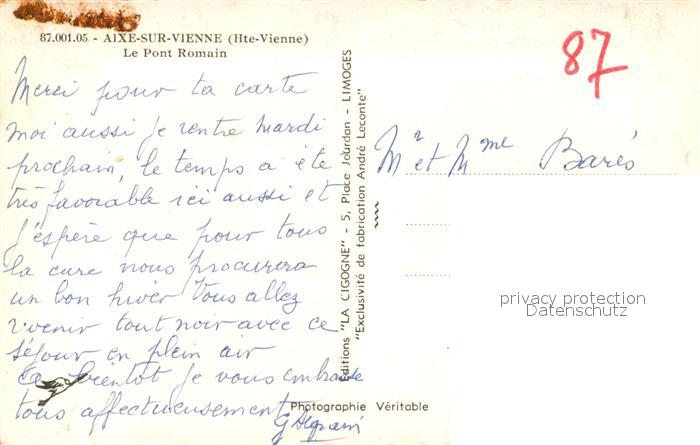 87.001.05 - AIXE-SUR-VIENNE (Hte-Vienne)
Le Pont Romain
Merci pour ta carte
moi aussi je rentre mardi
prochain, le temps a été
très favorable ici aussi et
j'espère que pour tous
la cure nous procurera
un bon hiver Vous allez
revenir tout noir avec ce
séjour en plein air
bientôt je vous embrasse
tous affectueusement
Editions "LA CIGOGNE" - 5, Place Jourdan - LIMOGES
"Exclusivité de fabrication André Leconte"
87
Mr et Mme Barès
privacy protection
Datenschutz
Photographie Véritable